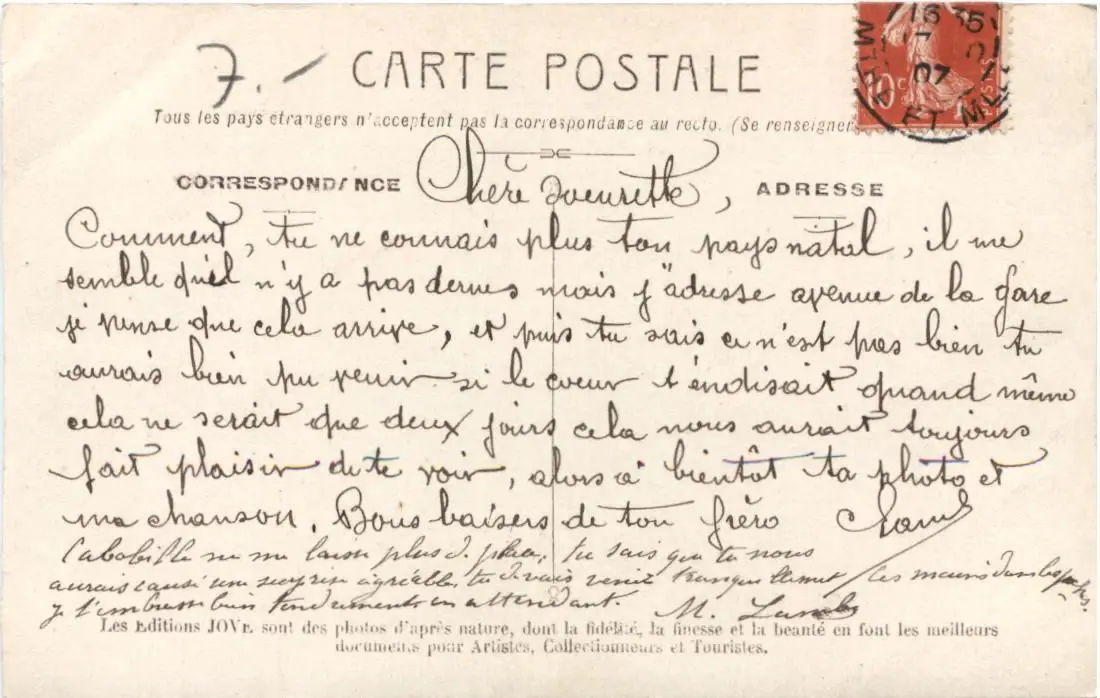 7.-
CARTE POSTALE
Tous les pays étrangers n'acceptent pas la correspondance au recto. (Se renseigner
CORRESPONDANCE
ADRESSE
Chère soeurette,
Comment, tu ne connais plus ton pays natal, il me
semble qu'il n'y a pas mais j'adresse avenue de la gare
je pense que cela arrive, et puis tu sais ce n'est pas bien tu
aurais bien pu venir si le coeur t'en disait quand même
cela ne serait que deux jours cela nous aurait toujours
fait plaisir de te voir, alors à bientôt ta photo et
ma chanson. Bons baisers de ton frèro
ne me laisse plus de place, tu sais que tu nous
aurais causé une surprise agréable, tu devais venir tranquillement les mains dans les poches.
je t'embrasse bien tendrement en attendant. M.
Les Editions JOVE sont des photos d'après nature, dont la fidélité, la finesse et la beauté en font les meilleurs
documents pour Artistes, Collectionneurs et Touristes.
10c
16 35
07
ET M